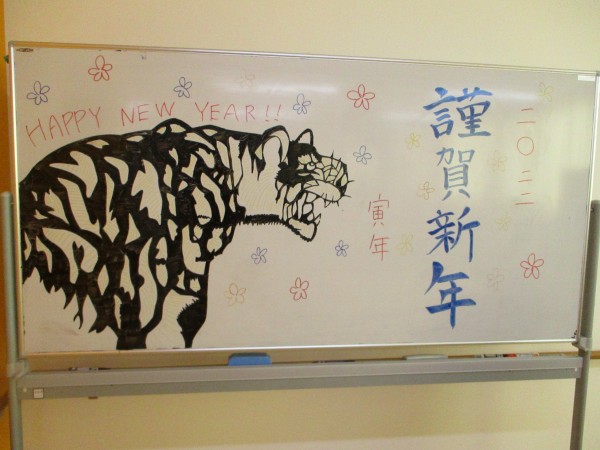 HAPPY NEW YEAR!!
二〇二二
謹賀新年
寅年